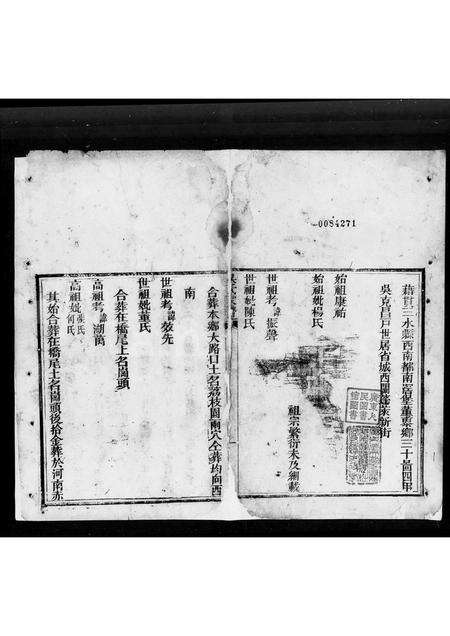 0084271
藉貫三水縣西南都南岸堡董寨鄉三十啚四甲
吳克昌戶世居省城西關蓬萊新街
廣東人民圖書館圖書
始祖康祐
始祖妣楊氏
祖宗繁衍未及細載
世祖考諱振聲
世祖妣陳氏
合葬本鄉大路口土名荔枝園兩穴仝葬均向西
南
世祖考諱效先
世祖妣董氏
合葬在橋尾土名崗頭
高祖考諱湖萬
高祖妣張氏何氏
其始合葬在橋尾土名崗頭後拾金葬於河南赤